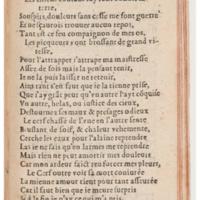 terre,
Souspirs, douleurs sans cesse me font guerre
Et ne sçaurois trouuer aucun repos,
Tant est ce feu compaignon de mes os,
Les picqueurs y vont brossant de grand vi-
tesse,
Pour l'attrapper i'attrape ma maistresse
Assez de fois mais la pensant tenir,
Ie ne la puis laisse ne retenir,
Ains tant s'en faut que ie la tienne prise,
Que i'ay grãd peur qu'vn autre l'ayt surprise
Vn autre, helas, ou iustice des cieux,
Destournez ses maux & presages odieux
Le cerf chassé de l'vne en l'autre sente
Bruslant de soif, & chaleur vehemente,
Cerche les eaux pour l'alaine reprendre
Las ie ne fais qu'en larmes me reprendre
Mais rien ne peut amortir mes douleurs
Car mon ardeur faict seu forcer mes pleurs,
Le Cerf outre voit sa mort coniurée
La mienne amour tient pour tant asseurée
Car il faut bien que ie meure surpris